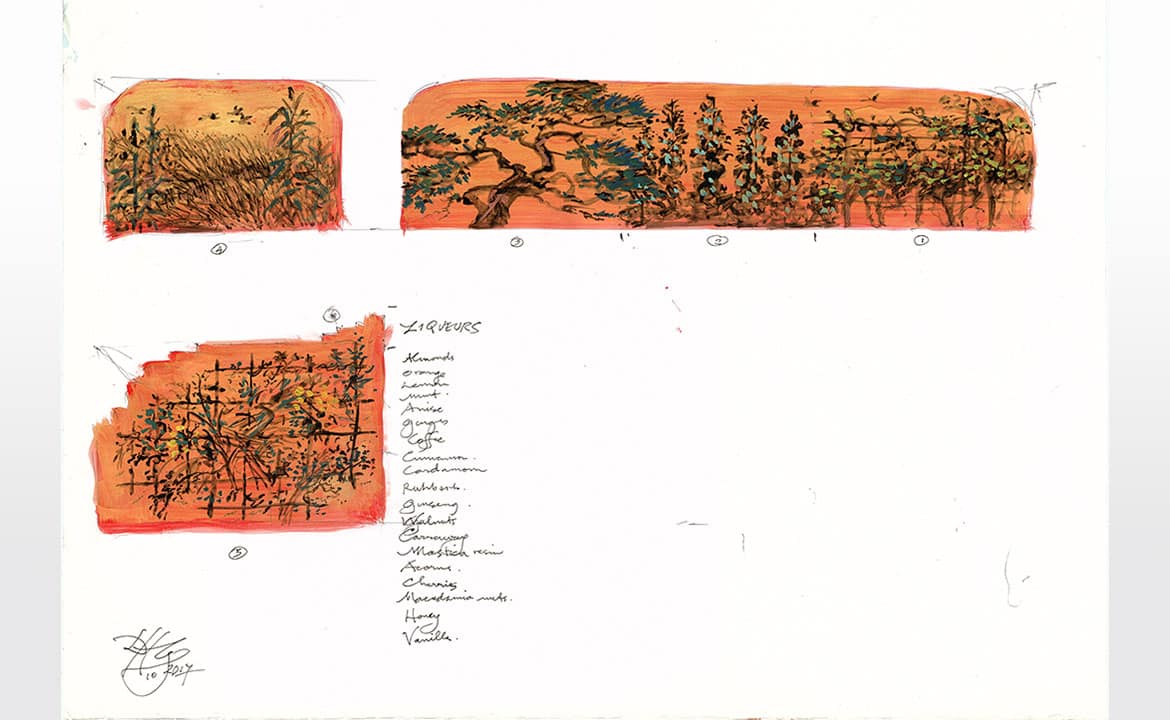 ④ ③ ② ①
LIQUEURS
Almonds
Orange
Lemon
Mint.
Anise
ginger
Coffee
Cinnamon.
Cardamom
Rubbarb.
Ginseng.
Walnuts
Carraway
Mastich resin
Acorns.
Cherries
Macadamia nuts.
Honey
Vanilla.
⑤
10 2017